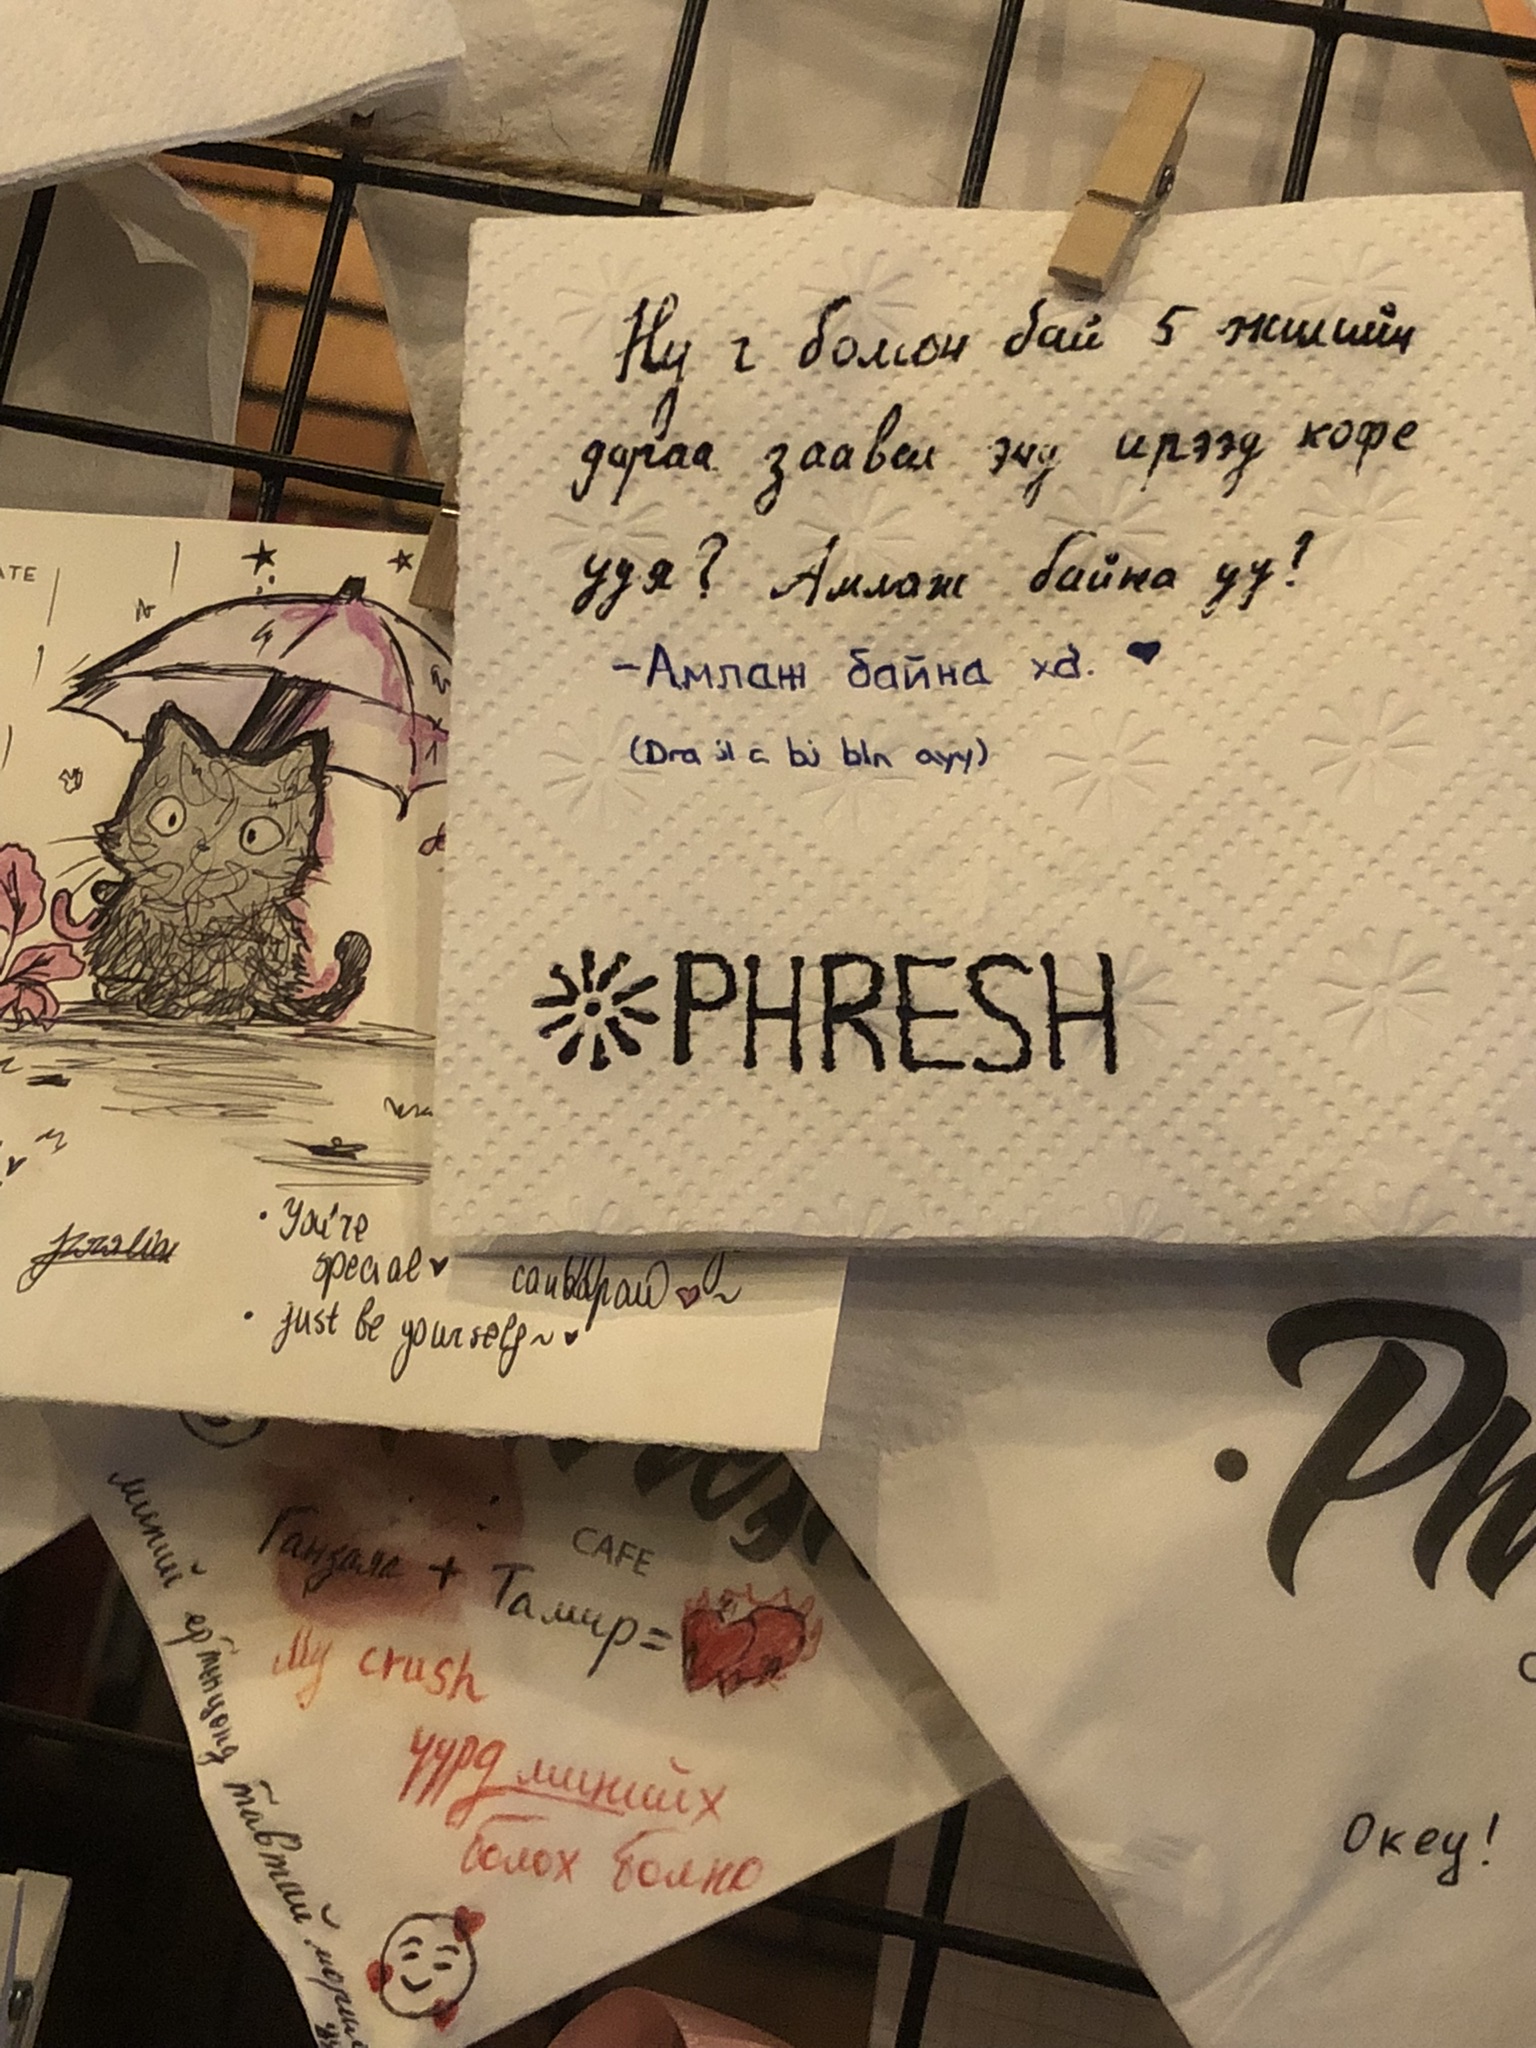 Ну г болсон бай 5 жилийн
дараа заавал энд ирээд кофе
ууя? Амлаж байна уу!
-Амлаж байна xd. ♥
bj bln ayy)
PHRESH
ATE
• You're
special ♥
• just be yourself~ ♥
CAFE
+ Тамир =
My crush
үүрд минийх
болох болно
миний ертөнцөд тавтай морил
Окей!